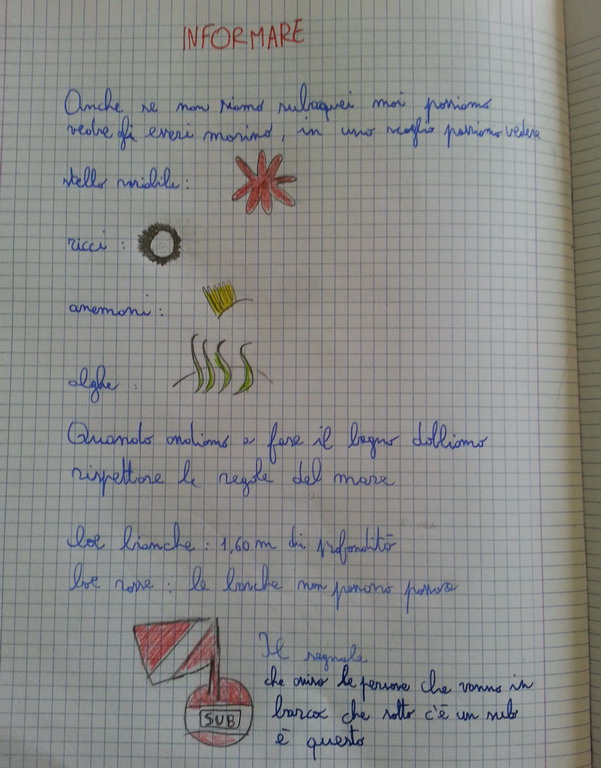 INFORMARE
Anche se non siamo subaquei noi possiamo
vedere gli esseri marini, in uno scoglio possiamo vedere
stella variabile:
ricci:
anemoni:
alghe:
Quando andiamo a fare il bagno dobbiamo
rispettare le regole del mare
boe bianche: 1,60 m di profondità
boe rosse: le barche non possono passare
Il segnale
che avisa le persone che vanno in
barca che sotto c'è un sub
è questo
SUB